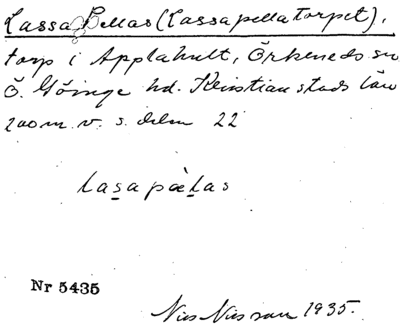 Lassa Pellas (Lassapellatorpet),
torp i Applahult, Örkeneds sn
Ö. Göinge hd. Kristianstads län
200 m. v. s. delen 22
lasapàlas
Nr 5435
Nils Nilsson 1935.